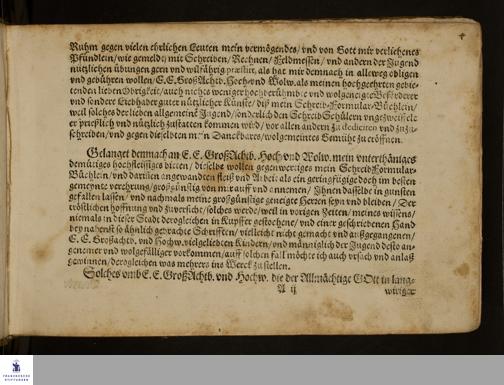 Ruhm gegen vielen ehrlichen Leuten mein vermögendes/ vnd von Gott mir verliehenes
Pfündlein/ wie gemeldet/ mit Schreiben/ Rechnen/ Feldmessen/ vnd andern der Jugend
nützlichen übungen gern vnd wilfährig præstiert, als hat mir demnach in alleweg obligen
vnd gebühren wollen/ E.E. GroßAchtb. Hoch vnd Wolw. als meinen hochgeehrten gebie-
tenden lieben Obrigkeit/ auch nichts weniger hochberühmbte vnd wolgeneigte Beförderer
vnd sondere Liebhaber guter nützlicher Künste/ diß mein Schreib-Formular-Büchlein/
weil solches der lieben allgemeinen Jugend/ sonderlich den SchreibSchülern ungezweifelt
er prießlich vnd nützlich zustatten kommen wird/ vor allen andern zu dediciren vnd zuzu-
schreiben/ vnd gegen dieselbten mein Danckbares/ wolgemeintes Gemüht zu eröffnen.
Gelanget demnach an E.E. GroßAchtb. Hoch vnd Wolw. mein unterthäniges
demütiges hochfleissiges bitten/ dieselbe wollen gegenwertiges mein Schreib-Formular-
Büchlein/ vnd darinen angewandten fleiß vnd Arbeit als ein geringfügige doch im besten
gemeynte verehrung/ großgünstig von mir auff vnd annemen/ Ihnen dasselbe in gunsten
gefallen lassen/ vnd nachmals meine großgünstige geneigte Herren seyn vnd bleiben/ Der
tröstlichen hoffnung vnd zuversicht/ solches werde/ weil in vorigen Zeiten/ meines wissens/
niemals in dieser Stadt dergleichen in Kupffer gestochene/ vnd einer geschriebenen Hand
bey nahenst so ähnlich gebrachte Schrifften/ vielleicht nicht gemacht vnd außgegangenen/
E.E. Großachtb. vnd Hochw. vielgeliebten Kindern/ vnd männiglich der Jugend desto an-
genemer vnd wolgefälliger vorkommen/ auff solchen fall möchte ich auch vrsach vnd anlaß
gewinnen/ dergleichen was mehrers ins Werck zustellen.
Solches vmb E.E. GroßAchtb. vnd Hochw. die der Allmächtige GOtt in lang-
A ij wiriger
FRANCKESCHE
STIFTUNGEN